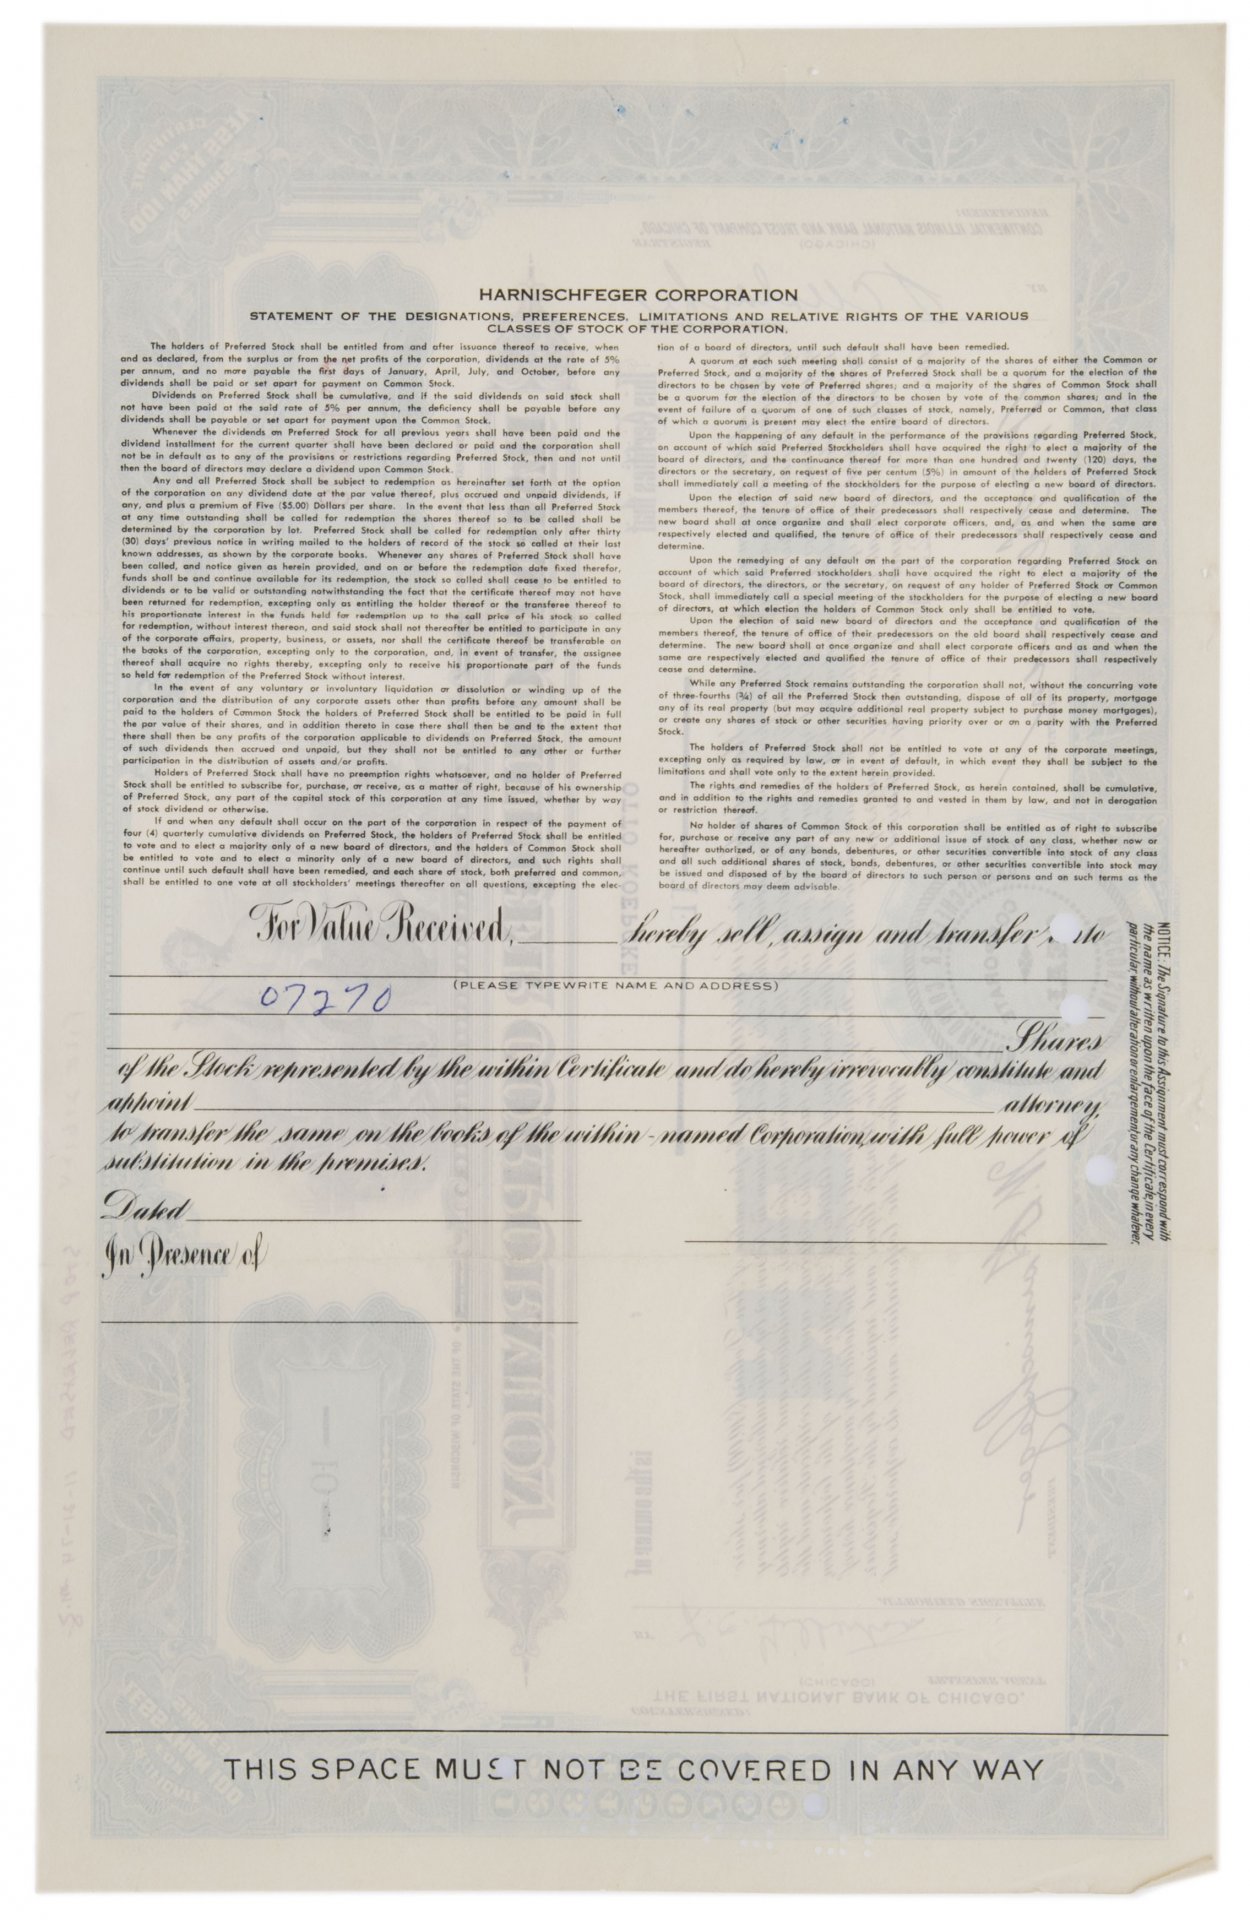 HARNISCHFEGER CORPORATION
STATEMENT OF THE DESIGNATIONS, PREFERENCES, LIMITATIONS AND RELATIVE RIGHTS OF THE VARIOUS
CLASSES OF STOCK OF THE CORPORATION.
The holders of Preferred Stock shall be entitled from and after issuance thereof to receive, when
and as declared, from the surplus or from the net profits of the corporation, dividends at the rate of 5%
per annum, and no more payable the first days of January, April, July, and October, before any
dividends shall be paid or set apart for payment on Common Stock.
Dividends on Preferred Stock shall be cumulative, and if the said dividends on said stock shall
not have been paid at the said rate of 5% per annum, the deficiency shall be payable before any
dividends shall be payable or set apart for payment upon the Common Stock.
Whenever the dividends on Preferred Stock for all previous years shall have been paid and the
dividend installment for the current quarter shall have been declared or paid and the corporation shall
not be in default as to any of the provisions or restrictions regarding Preferred Stock, then and not until
then the board of directors may declare a dividend upon Common Stock.
Any and all Preferred Stock shall be subject to redemption as hereinafter set forth at the option
of the corporation on any dividend date at the par value thereof, plus accrued and unpaid dividends, if
any, and plus a premium of Five ($5.00) Dollars per share. In the event that less than all Preferred Stock
at any time outstanding shall be called for redemption the shares thereof so to be called shall be
determined by the corporation by lot. Preferred Stock shall be called for redemption only after thirty
(30) days' previous notice in writing mailed to the holders of record of the stock so called at their last
known addresses, as shown by the corporate books. Whenever any shares of Preferred Stock shall have
been called, and notice given as herein provided, and on or before the redemption date fixed therefor,
funds shall be and continue available for its redemption, the stock so called shall cease to be entitled to
dividends or to be valid or outstanding notwithstanding the fact that the certificate thereof may not have
been returned for redemption, excepting only as entitling the holder thereof or the transferee thereof to
his proportionate interest in the funds held for redemption up to the call price of his stock so called
for redemption, without interest thereon, and said stock shall not thereafter be entitled to participate in any
of the corporate affairs, property, business, or assets, nor shall the certificate thereof be transferable on
the books of the corporation, excepting only to the corporation, and, in event of transfer, the assignee
thereof shall acquire no rights thereby, excepting only to receive his proportionate part of the funds
so held for redemption of the Preferred Stock without interest.
In the event of any voluntary or involuntary liquidation or dissolution or winding up of the
corporation and the distribution of any corporate assets other than profits before any amount shall be
paid to the holders of Common Stock the holders of Preferred Stock shall be entitled to be paid in full
the par value of their shares, and in addition thereto in case there shall then be and to the extent that
there shall then be any profits of the corporation applicable to dividends on Preferred Stock, the amount
of such dividends then accrued and unpaid, but they shall not be entitled to any other or further
participation in the distribution of assets and/or profits.
Holders of Preferred Stock shall have no preemption rights whatsoever, and no holder of Preferred
Stock shall be entitled to subscribe for, purchase, or receive, as a matter of right, because of his ownership
of Preferred Stock, any part of the capital stock of this corporation at any time issued, whether by way
of stock dividend or otherwise.
If and when any default shall occur on the part of the corporation in respect of the payment of
four (4) quarterly cumulative dividends on Preferred Stock, the holders of Preferred Stock shall be entitled
to vote and to elect a majority only of a new board of directors, and the holders of Common Stock shall
be entitled to vote and to elect a minority only of a new board of directors, and such rights shall
continue until such default shall have been remedied, and each share of stock, both preferred and common,
shall be entitled to one vote at all stockholders' meetings thereafter on all questions, excepting the elec-
tion of a board of directors, until such default shall have been remedied.
A quorum at each such meeting shall consist of a majority of the shares of either the Common or
Preferred Stock, and a majority of the shares of Preferred Stock shall be a quorum for the election of the
directors to be chosen by vote of Preferred shares; and a majority of the shares of Common Stock shall
be a quorum for the election of the directors to be chosen by vote of the common shares; and in the
event of failure of a quorum of one of such classes of stock, namely, Preferred or Common, that class
of which a quorum is present may elect the entire board of directors.
Upon the happening of any default in the performance of the provisions regarding Preferred Stock,
on account of which said Preferred Stockholders shall have acquired the right to elect a majority of the
board of directors, and the continuance thereof for more than one hundred and twenty (120) days, the
directors or the secretary, on request of five per centum (5%) in amount of the holders of Preferred Stock
shall immediately call a meeting of the stockholders for the purpose of electing a new board of directors.
Upon the election of said new board of directors, and the acceptance and qualification of the
members thereof, the tenure of office of their predecessors shall respectively cease and determine. The
new board shall at once organize and shall elect corporate officers, and, as and when the same are
respectively elected and qualified, the tenure of office of their predecessors shall respectively cease and
determine.
Upon the remedying of any default on the part of the corporation regarding Preferred Stock on
account of which said Preferred stockholders shall have acquired the right to elect a majority of the
board of directors, the directors, or the secretary, on request of any holder of Preferred Stock or Common
Stock, shall immediately call a special meeting of the stockholders for the purpose of electing a new board
of directors, at which election the holders of Common Stock only shall be entitled to vote.
Upon the election of said new board of directors and the acceptance and qualification of the
members thereof, the tenure of office of their predecessors on the old board shall respectively cease and
determine. The new board shall at once organize and shall elect corporate officers and as and when the
same are respectively elected and qualified the tenure of office of their predecessors shall respectively
cease and determine.
While any Preferred Stock remains outstanding the corporation shall not, without the concurring vote
of three-fourths (¾) of all the Preferred Stock then outstanding, dispose of all of its property, mortgage
any of its real property (but may acquire additional real property subject to purchase money mortgages),
or create any shares of stock or other securities having priority over or on a parity with the Preferred
Stock.
The holders of Preferred Stock shall not be entitled to vote at any of the corporate meetings,
excepting only as required by law, or in event of default, in which event they shall be subject to the
limitations and shall vote only to the extent herein provided.
The rights and remedies of the holders of Preferred Stock, as herein contained, shall be cumulative,
and in addition to the rights and remedies granted to and vested in them by law, and not in derogation
or restriction thereof.
No holder of shares of Common Stock of this corporation shall be entitled as of right to subscribe
for, purchase or receive any part of any new or additional issue of stock of any class, whether now or
hereafter authorized, or of any bonds, debentures, or other securities convertible into stock of any class
and all such additional shares of stock, bonds, debentures, or other securities convertible into stock may
be issued and disposed of by the board of directors to such person or persons and on such terms as the
board of directors may deem advisable.
For Value Received, hereby sell, assign and transfer to
(PLEASE TYPEWRITE NAME AND ADDRESS)
07270
Shares
of the Stock represented by the within Certificate and do hereby irrevocably constitute and
appoint attorney,
to transfer the same on the books of the within-named Corporation, with full power of
substitution in the premises.
Dated
In Presence of
NOTICE: The Signature to this Assignment must correspond with
the name as written upon the face of the Certificate, in every
particular, without alteration or enlargement, or any change whatever.
THIS SPACE MUST NOT BE COVERED IN ANY WAY